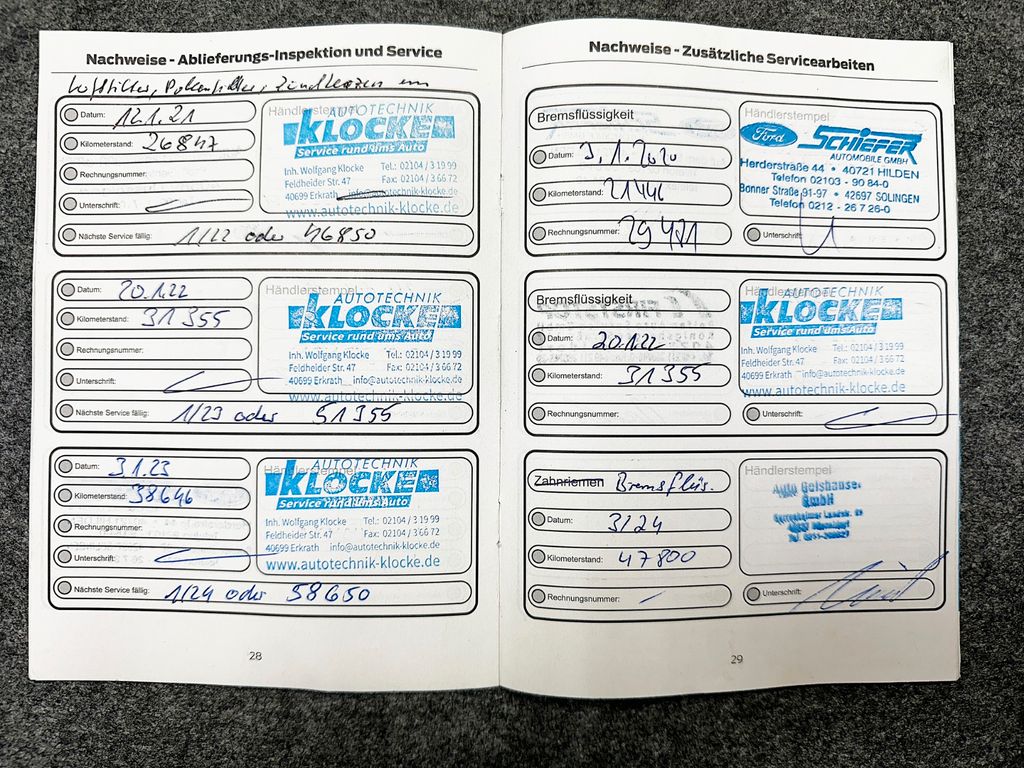 Nachweise - Ablieferungs-Inspektion und Service
Luftfilter, Pollenfilter, Zündkerzen
Datum: 12.1.21
Kilometerstand: 26847
Rechnungsnummer:
Unterschrift:
Nächste Service fällig: 1/22 oder 46850
Händlerstempel
AUTOTECHNIK
KLOCKE
Service rund ums Auto
Inh. Wolfgang Klocke Tel.: 02104 / 3 19 99
Feldheider Str. 47 Fax: 02104 / 3 66 72
40699 Erkrath info@autotechnik-klocke.de
www.autotechnik-klocke.de
Datum: 20.1.22
Kilometerstand: 31355
Rechnungsnummer:
Unterschrift:
Nächste Service fällig: 1/23 oder 51355
Händlerstempel
AUTOTECHNIK
KLOCKE
Service rund ums Auto
Inh. Wolfgang Klocke Tel.: 02104 / 3 19 99
Feldheider Str. 47 Fax: 02104 / 3 66 72
40699 Erkrath info@autotechnik-klocke.de
www.autotechnik-klocke.de
Datum: 3.1.23
Kilometerstand: 38646
Rechnungsnummer:
Unterschrift:
Nächste Service fällig: 1/24 oder 58650
Händlerstempel
AUTOTECHNIK
KLOCKE
Service rund ums Auto
Inh. Wolfgang Klocke Tel.: 02104 / 3 19 99
Feldheider Str. 47 Fax: 02104 / 3 66 72
40699 Erkrath info@autotechnik-klocke.de
www.autotechnik-klocke.de
28
Nachweise - Zusätzliche Servicearbeiten
Bremsflüssigkeit
Datum: 3.1.2020
Kilometerstand: 21446
Rechnungsnummer: 29471
Händlerstempel
Ford SCHIEFER
AUTOMOBILE GMBH
Herderstraße 44 • 40721 HILDEN
Telefon 02103 - 90 84-0
Bonner Straße 91-97 • 42697 SOLINGEN
Telefon 0212 - 26 7 26-0
Unterschrift:
Bremsflüssigkeit
Datum: 20.1.22
Kilometerstand: 31355
Rechnungsnummer:
Händlerstempel
AUTOTECHNIK
KLOCKE
Service rund ums Auto
Inh. Wolfgang Klocke Tel.: 02104 / 3 19 99
Feldheider Str. 47 Fax: 02104 / 3 66 72
40699 Erkrath info@autotechnik-klocke.de
www.autotechnik-klocke.de
Unterschrift:
Zahnriemen Bremsflüs.
Datum: 3/24
Kilometerstand: 47800
Rechnungsnummer: -
Händlerstempel
Auto
GmbH
Unterschrift:
29